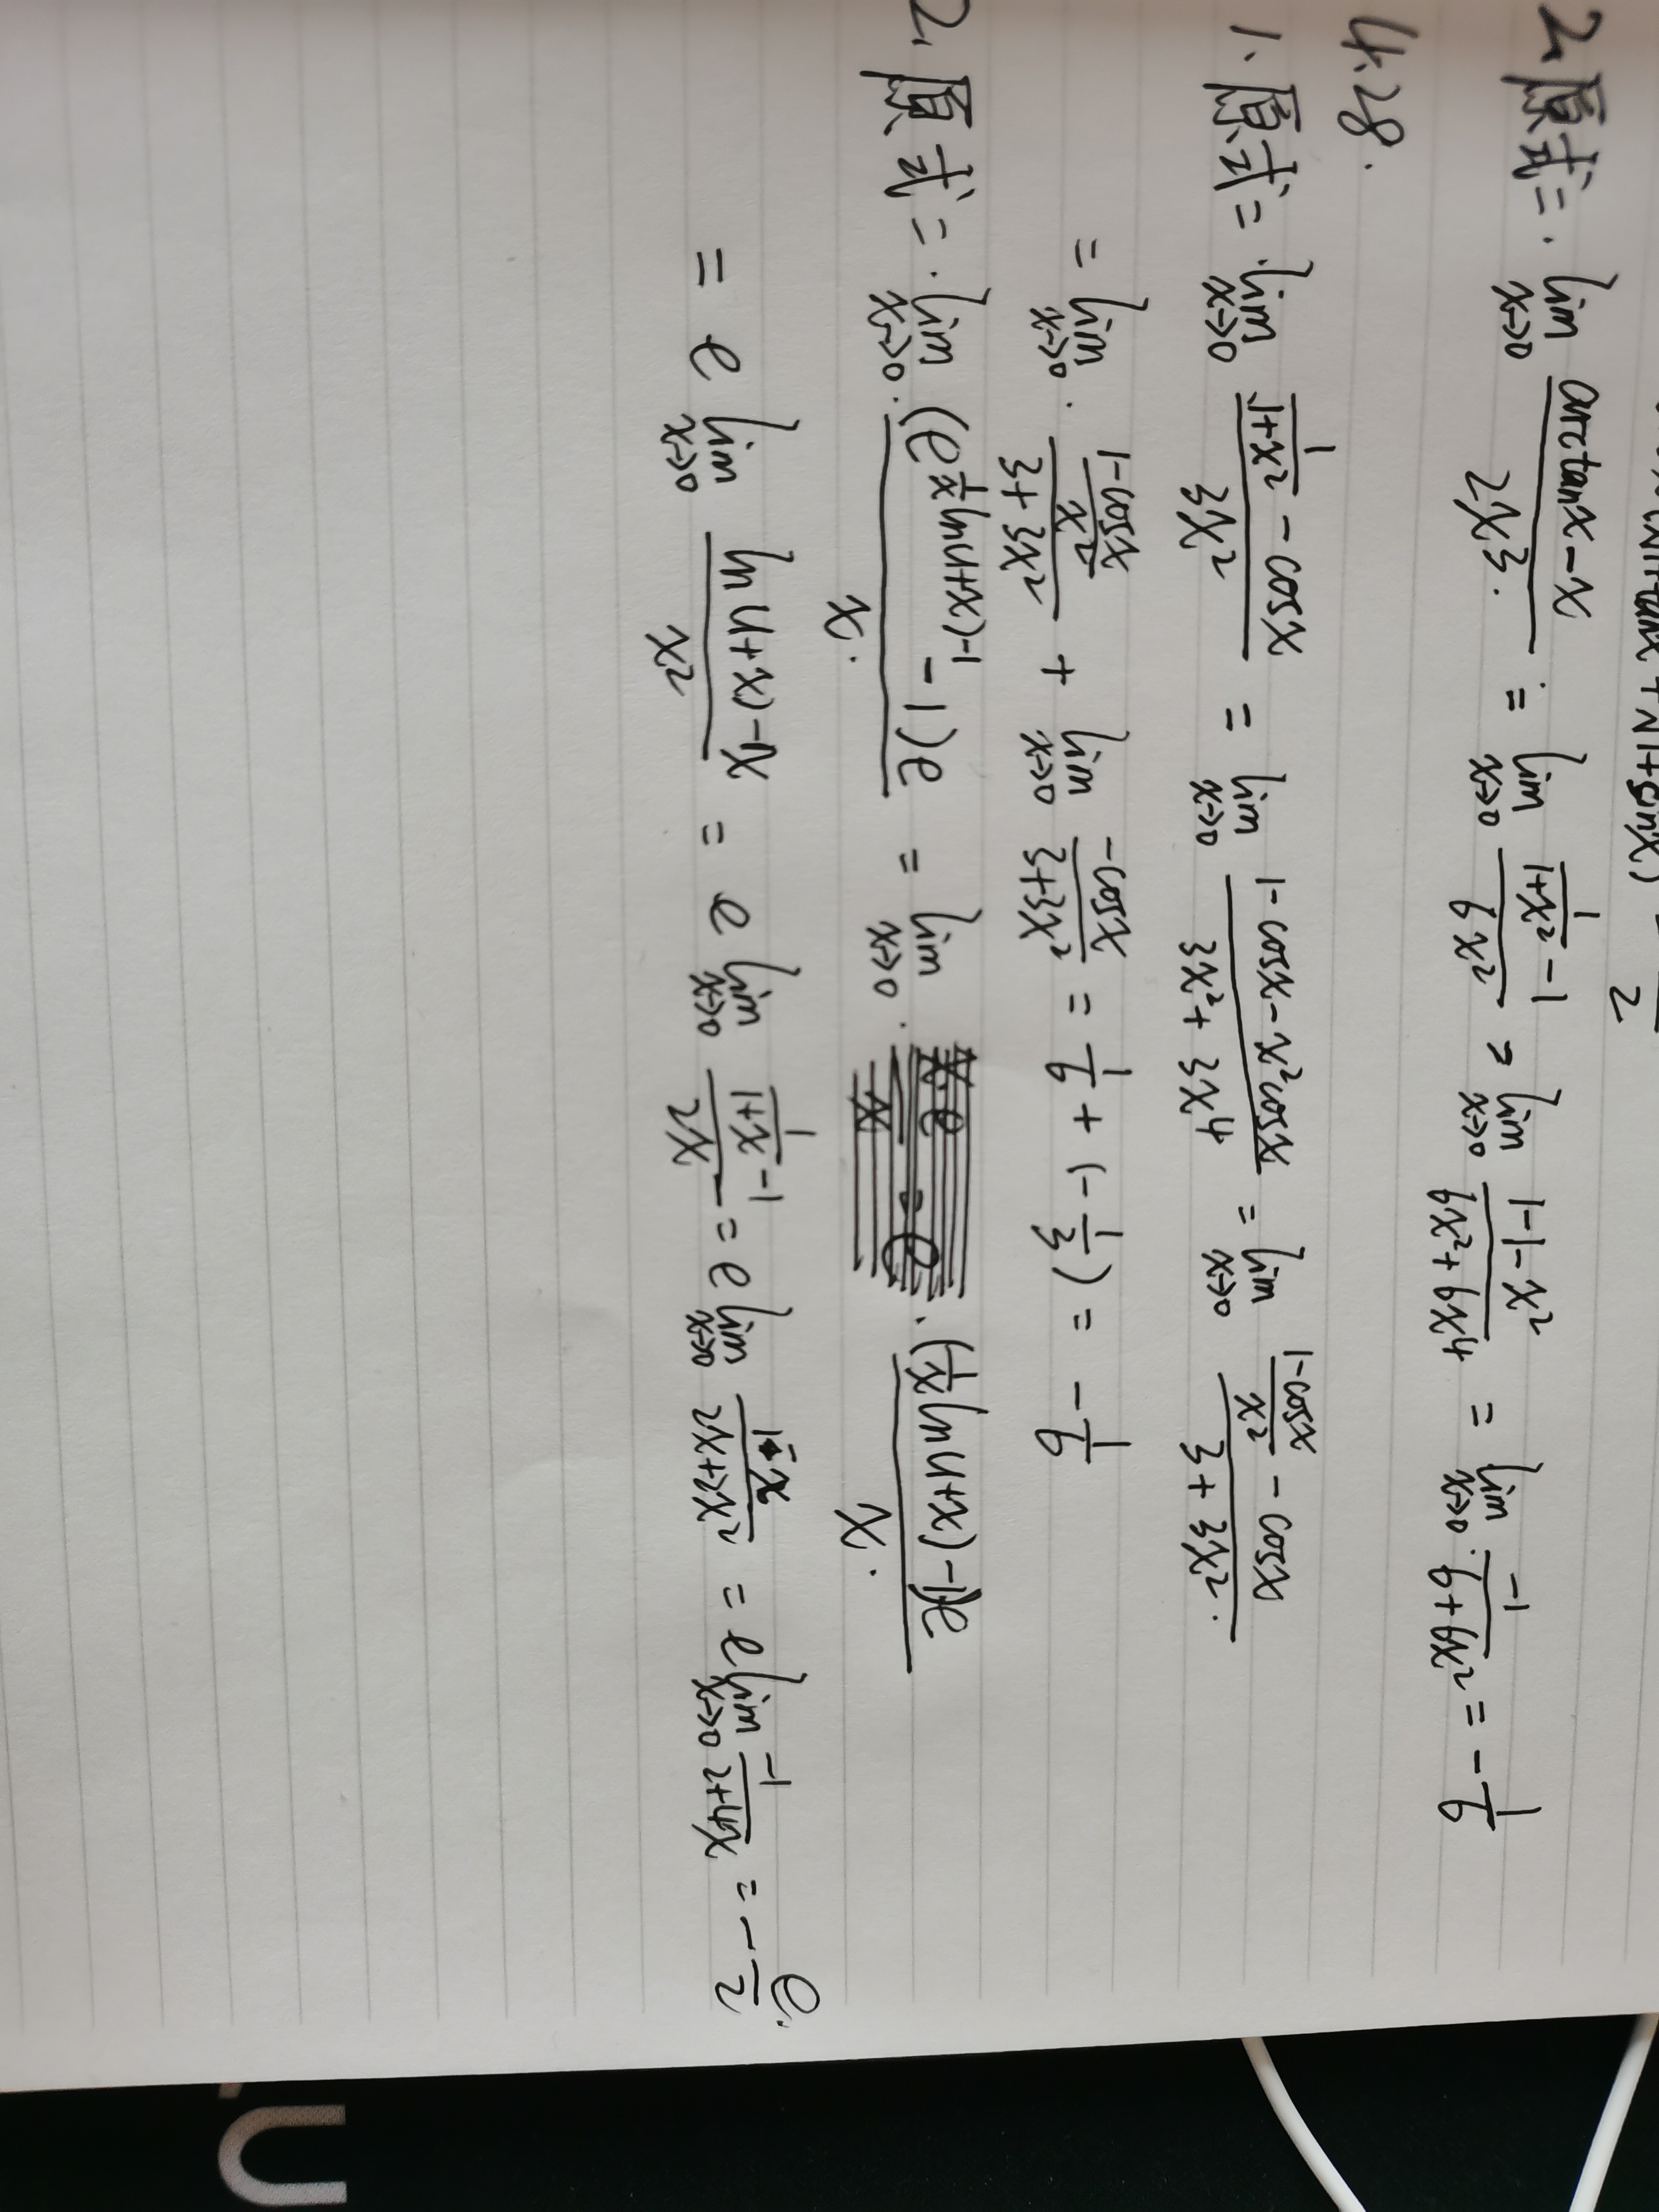 (√1+tanx + √1+sinx) 2
2.原式= lim x→0 (arctanx-x)/(2x³) = lim x→0 (1/(1+x²) -1)/(6x²) = lim x→0 (1-1-x²)/(6x²+6x⁴) = lim x→0 (-1)/(6+6x²) = -1/6
4.28.
1.原式= lim x→0 (1/(1+x²) - cosx)/(3x²) = lim x→0 (1-cosx-x²cosx)/(3x²+3x⁴) = lim x→0 ((1-cosx)/x² - cosx)/(3+3x²)
= lim x→0 ((1-cosx)/x²)/(3+3x²) + lim x→0 (-cosx)/(3+3x²) = 1/6 + (-1/3) = -1/6
2.原式= lim x→0 ((e^(1/x ln(1+x)-1) -1)e)/x = lim x→0 ((1/x ln(1+x)-1)e)/x
= e lim x→0 (ln(1+x)-x)/x² = e lim x→0 (1/(1+x) -1)/(2x) = e lim x→0 (-x)/(2x+2x²) = e lim x→0 (-1)/(2+4x) = -e/2